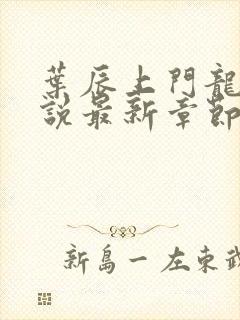 葉辰上門龍
說最新章節
新島一左東武